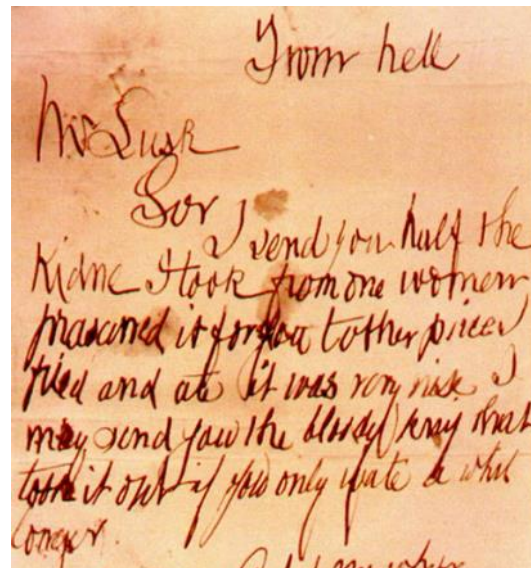 From hell
Mr Lusk
Sor
I send you half the
Kidne I took from one women
prasarved it for you tother piece I
fried and ate it was very nise I
may send you the bloody knif that
took it out if you only wate a whil
longer.